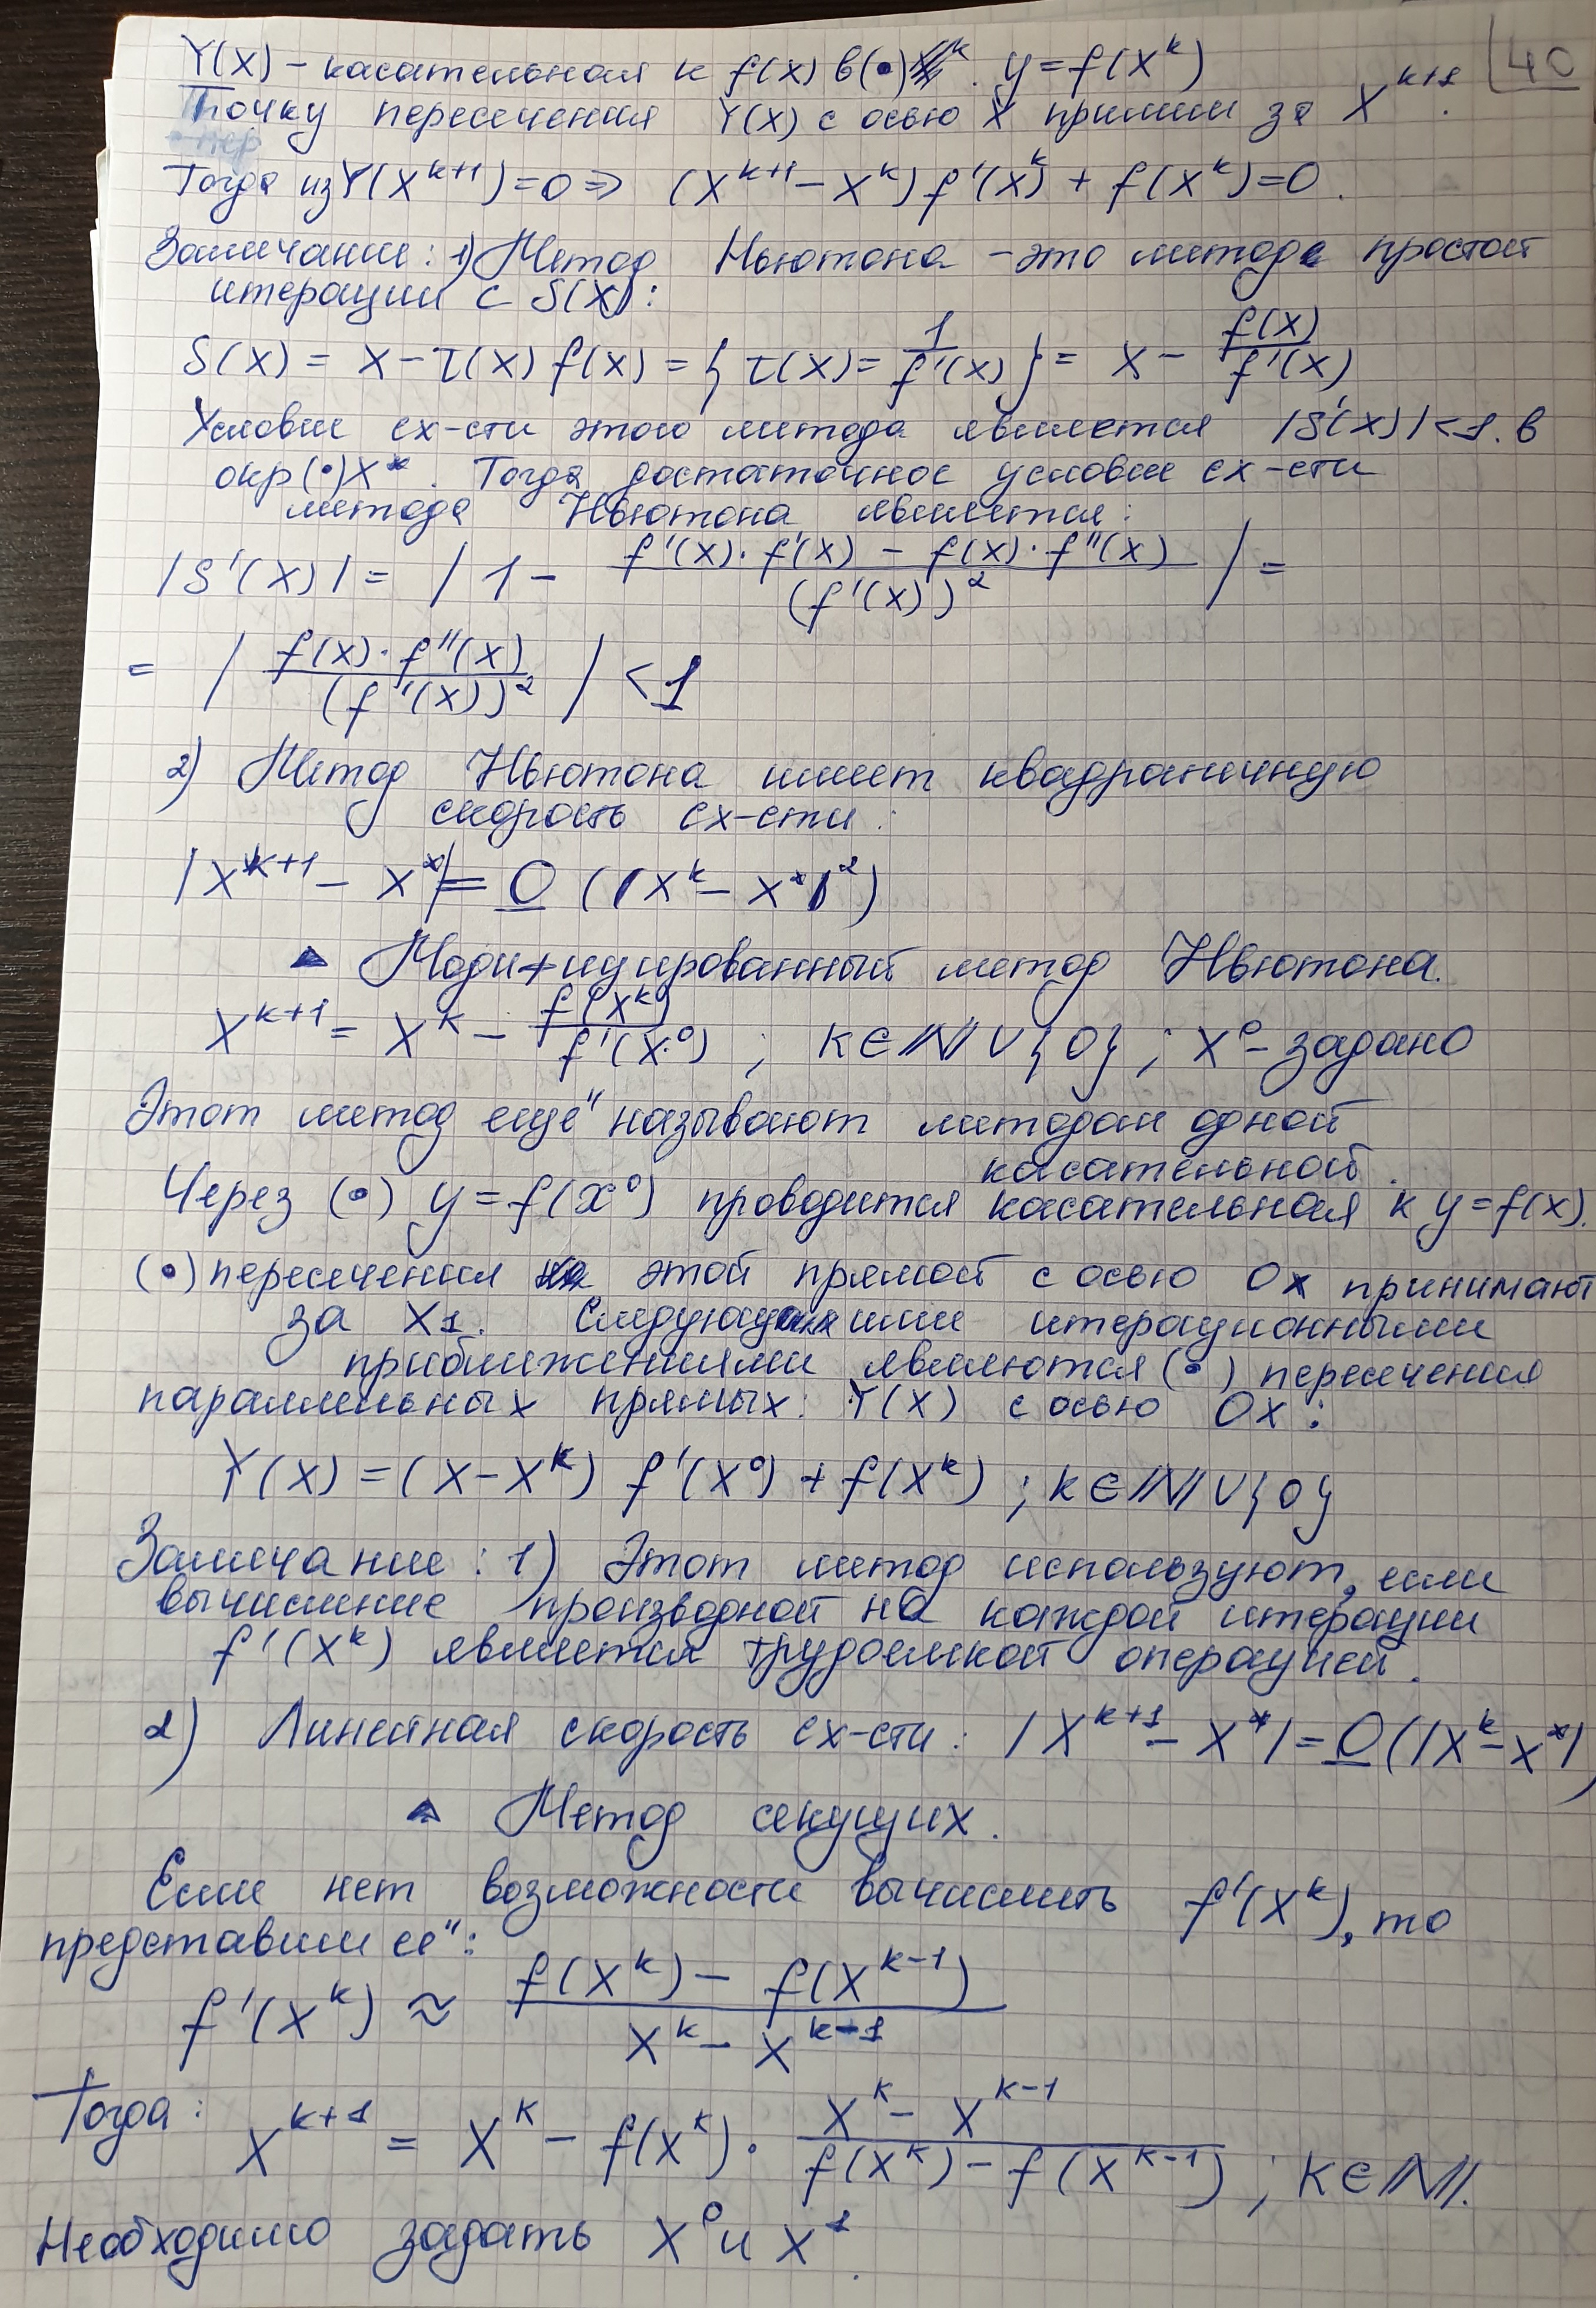 Y(x) – касательная к f(x) в (•) . y = f(x^k)
40
Точку пересечения Y(x) с осью X примем за x^{k+1}.
Тогда из Y(x^{k+1})=0 ⇒ (x^{k+1} – x^k) f'(x^k) + f(x^k)=0.
Замечание: 1) Метод Ньютона – это метод простой
итерации с S(x):
S(x) = x – τ(x) f(x) = { τ(x) = 1/f'(x) } = x – f(x)/f'(x)
Условие сх-сти этого метода является |S'(x)|<1. в
окр (•) x*. Тогда достаточное условие сх-сти
метода Ньютона является:
|S'(x)| = | 1 – (f'(x)·f'(x) – f(x)·f''(x))/(f'(x))^2 | =
= | f(x)·f''(x)/(f'(x))^2 | < 1
2) Метод Ньютона имеет квадратичную
скорость сх-сти:
|x^{k+1} – x*| = O(|x^k – x*|^2)
▲ Модифицированный метод Ньютона.
x^{k+1} = x^k – f(x^k)/f'(x^0) ; k∈ℕ∪{0} ; x^0 – задано
Этот метод ещё называют методом одной
касательной.
Через (•) y = f(x^0) проводится касательная к y=f(x).
(•) пересечения этой прямой с осью Ox принимают
за x1. Следующими итерационными
приближениями являются (•) пересечения
параллельных прямых: Y(x) с осью Ox:
Y(x) = (x–x^k) f'(x^0) + f(x^k) ; k∈ℕ∪{0}
Замечание: 1) Этот метод используют, если
вычисление производной на каждой итерации
f'(x^k) является трудоемкой операцией.
2) Линейная скорость сх-сти: |x^{k+1} – x*| = O(|x^k – x*|)
▲ Метод секущих.
Если нет возможности вычислить f'(x^k), то
представим её:
f'(x^k) ≈ (f(x^k) – f(x^{k-1}))/(x^k – x^{k-1})
Тогда: x^{k+1} = x^k – f(x^k) · (x^k – x^{k-1})/(f(x^k) – f(x^{k-1})) ; k∈ℕ.
Необходимо задать x^0 и x^1.